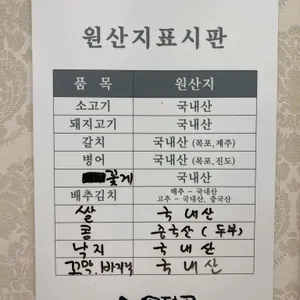 원산지표시판
품 목 원산지
소고기 국내산
돼지고기 국내산
갈치 국내산 (목포,제주)
병어 국내산 (목포,진도)
꽃게 국내산
배추김치 배추 - 국내산
고추 - 국내산, 중국산
쌀 국 내 산
콩 중국산 ( 두부 )
낙지 국 내 산
꼬막, 바지락 국 내 산